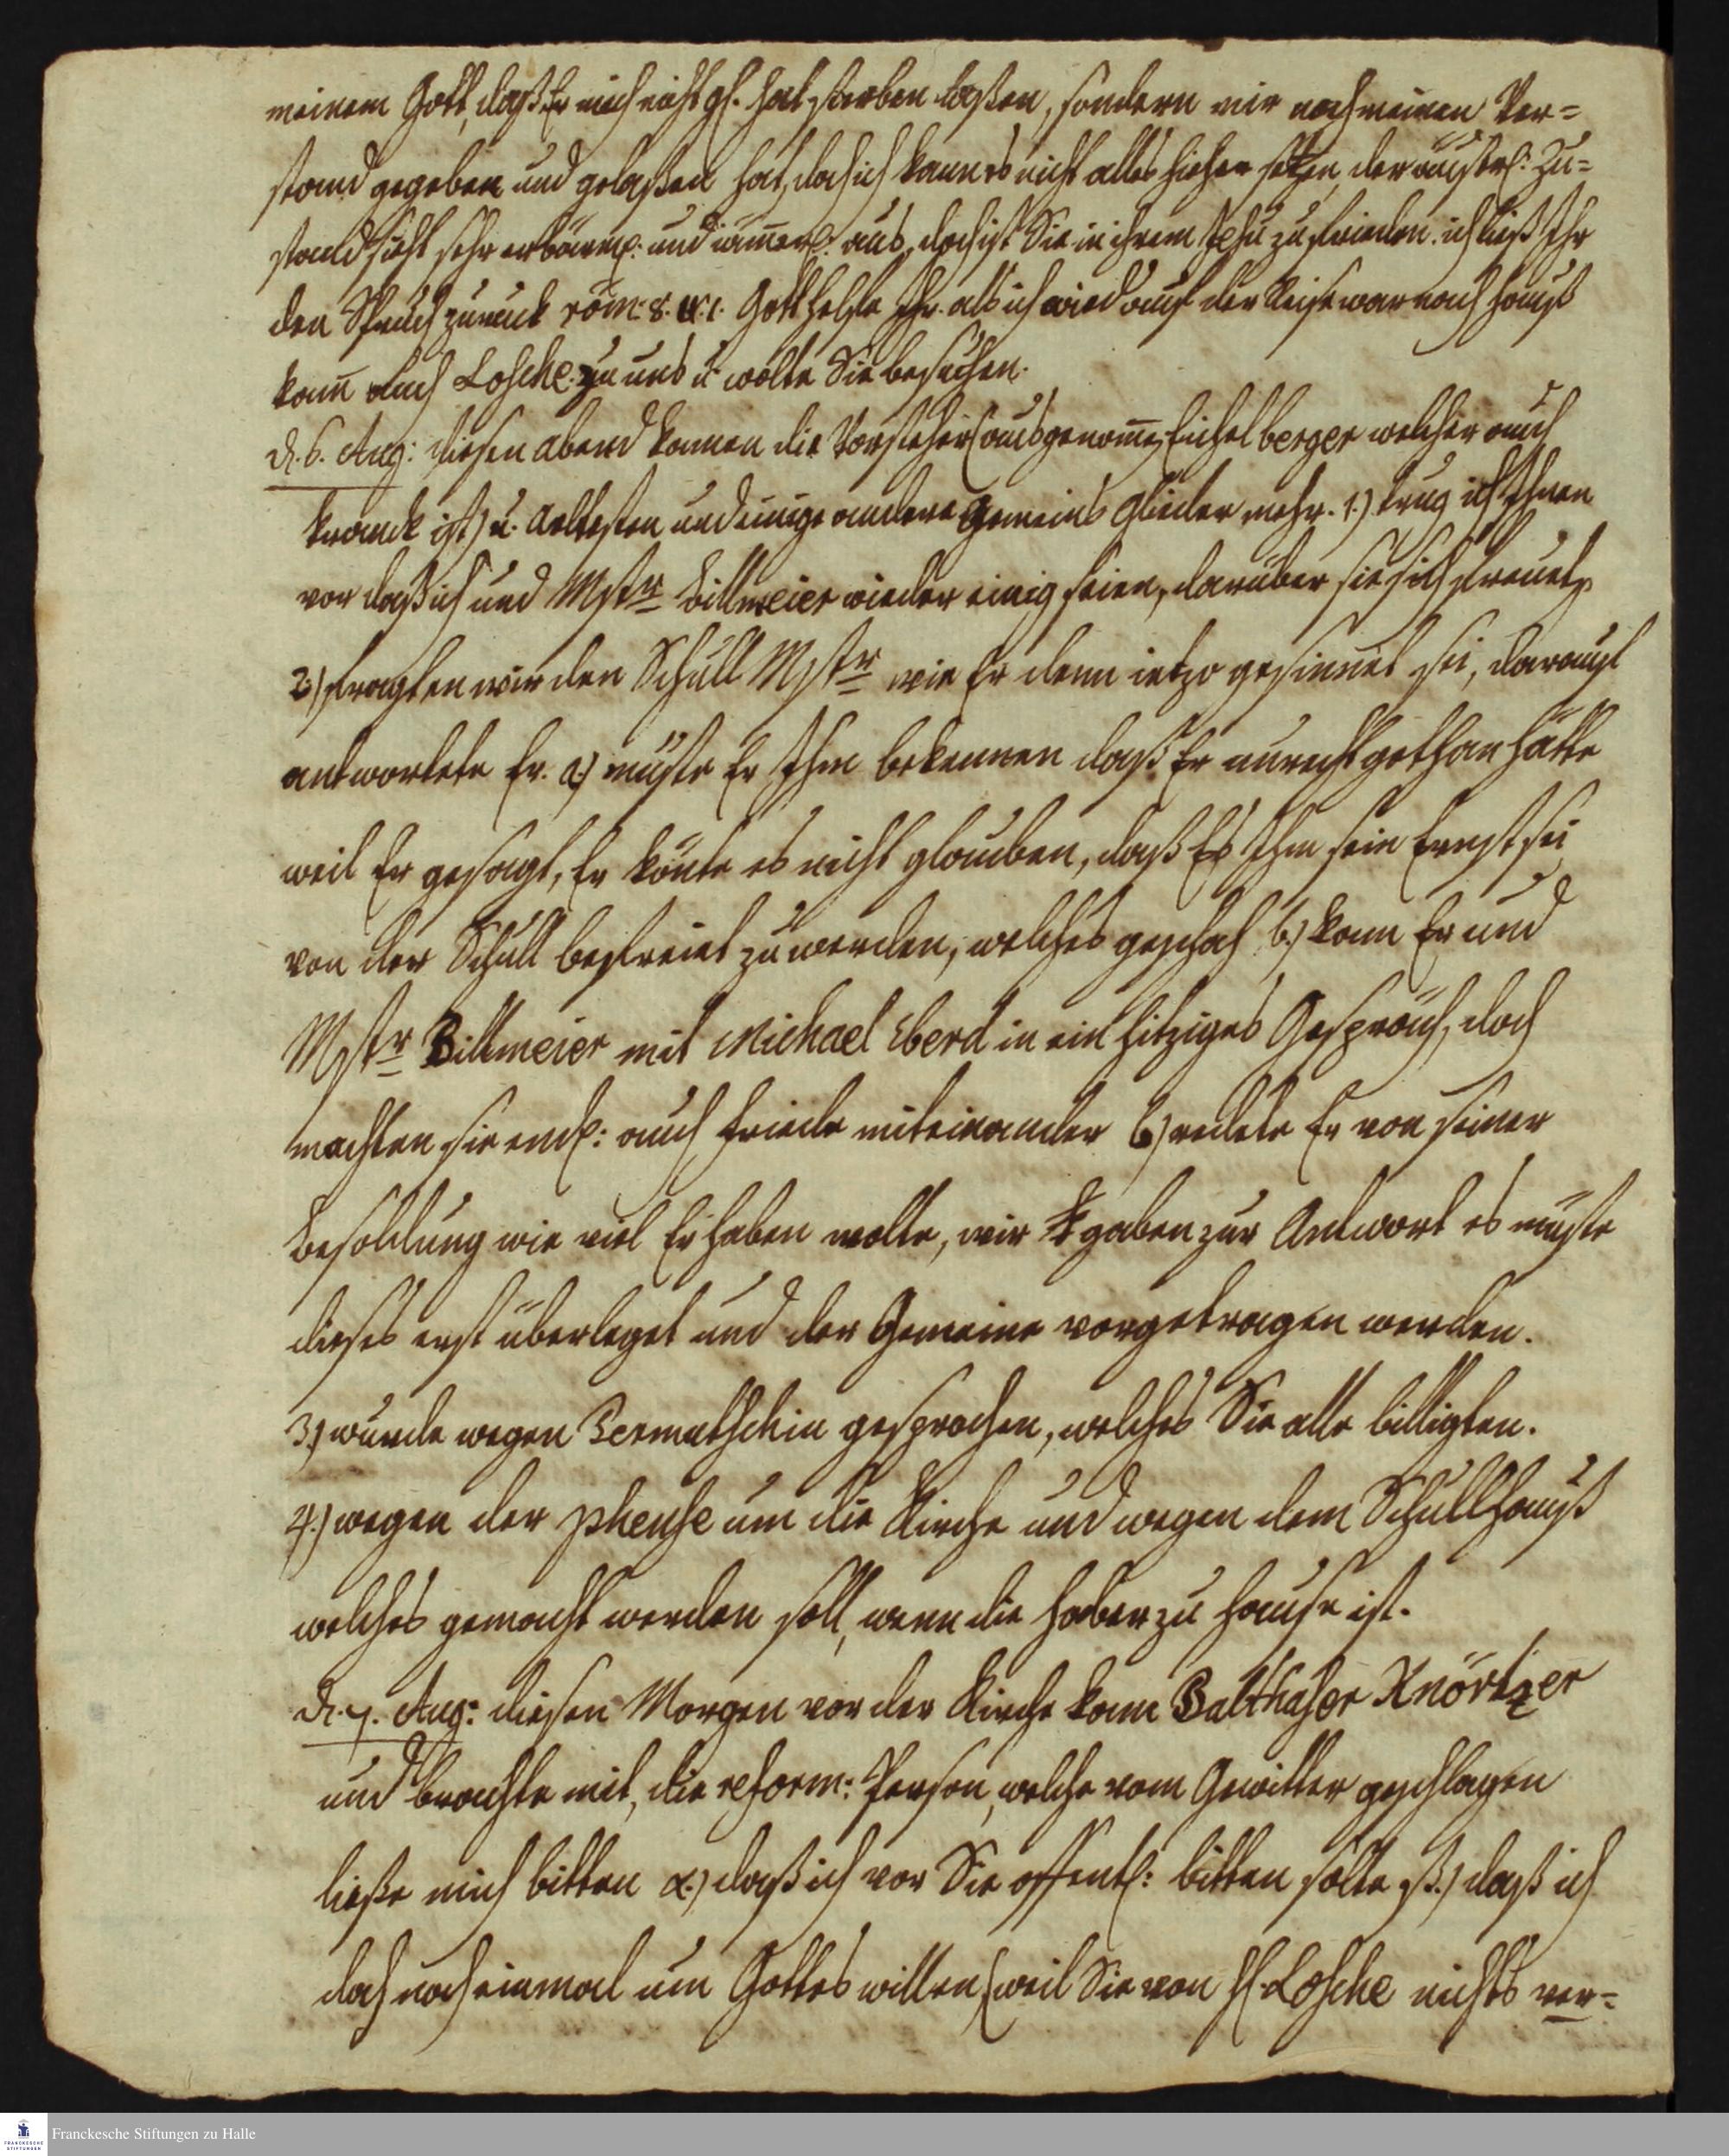 meinem Gott, daß Er mich nicht gl. hat sterben laßen, sondern mir noch meinen Ver=
stand gegeben und gelaßen hat, doch ich kann es nicht alles hieher setzen, der äuserl: Zu=
stand sieht sehr erbärml: und jämerl: aus, doch ist Sie in ihrem Jesu zufrieden. ich ließ Ihr
den Spruch zurück röm: 8. v. 1. Gott helfe Ihr. als ich wied auf der Reise war nach Hauß
kam auch Losche zu uns u. wolte Sie besuchen.
d. 6. Aug: diesen Abend kamen die Vorsteher (ausgenome Eichelberger welcher auch
kranck ist) u. Aeltesten und einige andere Gemeins Glieder mehr. 1.) trug ich Ihnen
vor daß ich und Mstr Billmeier wieder einig seien, darüber sie sich freuete
2.) fragten wir den Schull Mstr wie Er denn ietzo gesinnet sei, darauf
antwortete Er. a.) müste Er Ihm bekennen daß Er unrecht gethan hätte
weil Er gesagt, Er könte es nicht glauben, daß Es Ihm sein Ernst sei
von der Schull befreiet zu werden, welches geschah b.) kam Er und
Mstr Billmeier mit Michael Eberd in ein hitziges Gespräch, doch
machten sie endl: auch Friede miteinander c) redete Er von seiner
Besoldung wie viel Er haben wolte, wir gaben zur Antwort es müste
dieses erst überleget und der Gemeine vorgetragen werden.
3.) wurde wegen Permutschin gesprochen, welches Sie alle billigten.
4.) wegen der phense um die Kirche und wegen dem Schullhauß
welches gemacht werden soll, wenn die Haber zu Hause ist.
d. 7. Aug: diesen Morgen vor der Kirche kam Balthaser Knörtzer
und brachte mit, die reform: Person, welche vom Gewitter geschlagen
ließe mich bitten α.) daß ich vor Sie offentl: bitten solte β.) daß ich
doch noch einmal um Gottes willen (weil Sie von H. Losche nichts ver=
Franckesche Stiftungen zu Halle